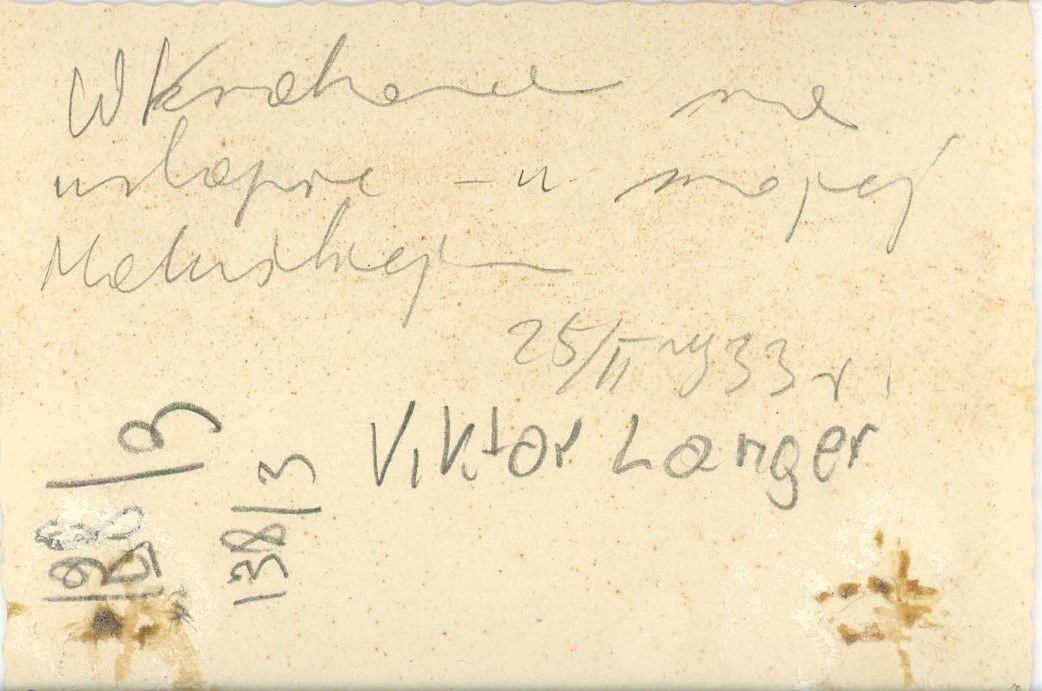 W Krakowie na
urlopie - u mojej
Matuś
25/II 1933 r.
Viktor Langer
138/3